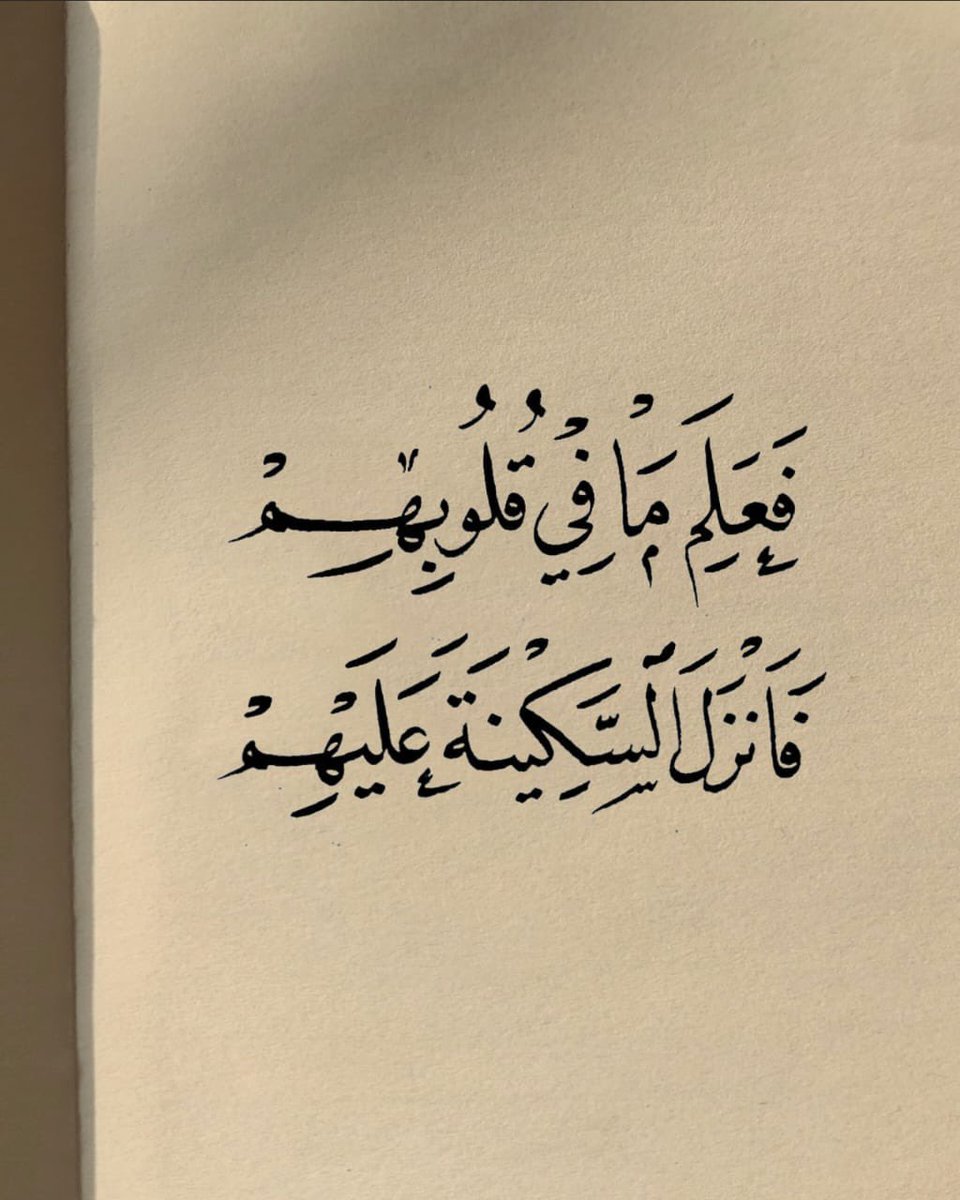 فَعَلِمَ مَاْ فِيْ قُلُوبِهِمْ
فَأَنْزَلَ ٱلسَّكِينَةَ عَلَيْهِمْ